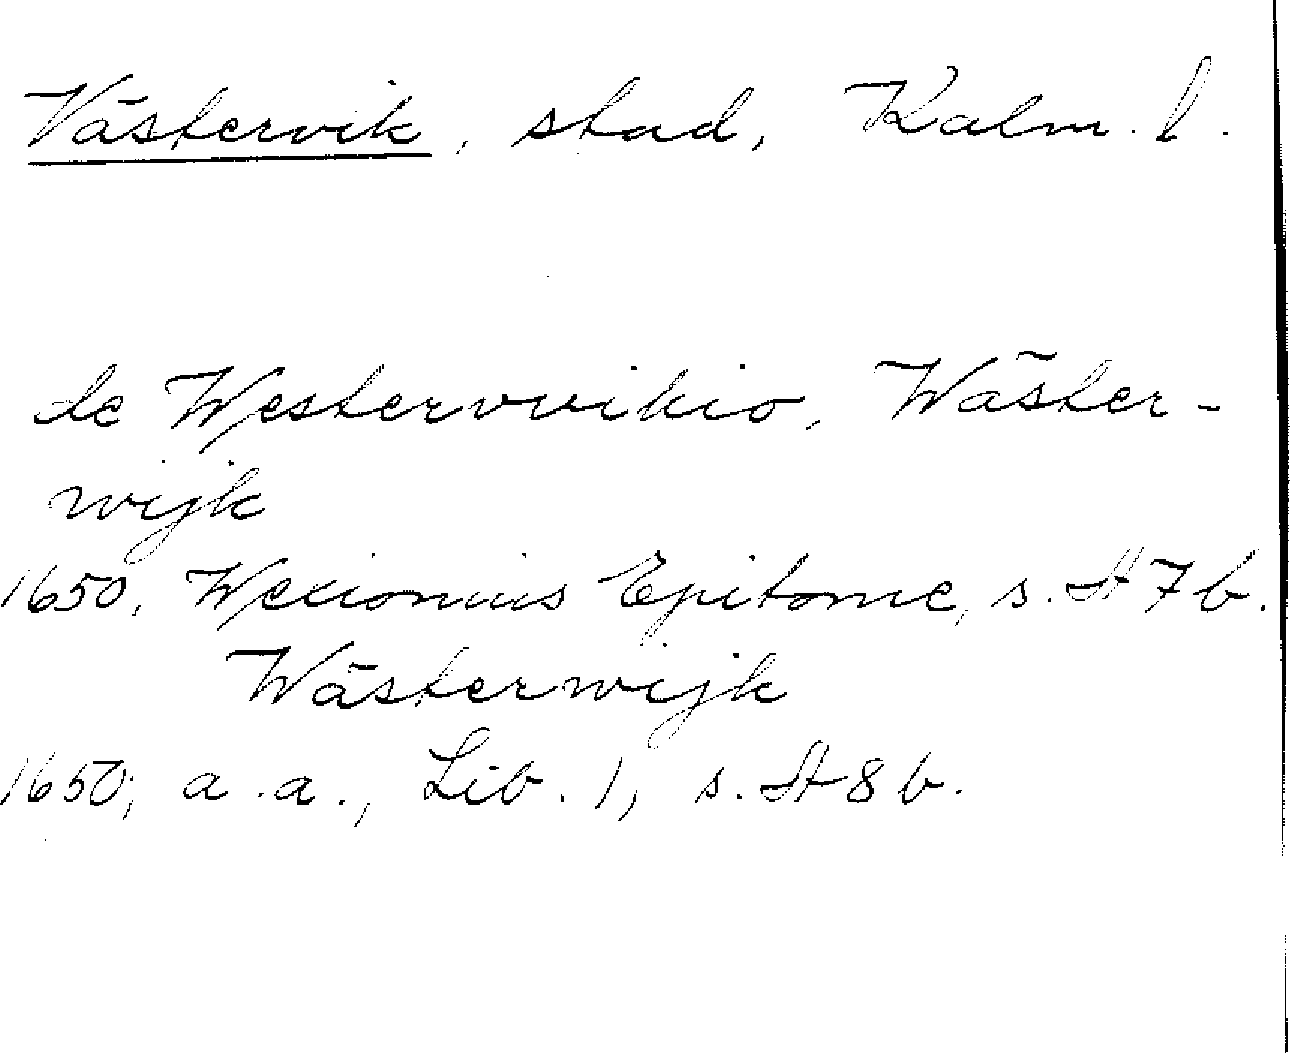 Västervik, stad, Kalm. l.
de Westervvikio, Wäster-
wijk
1650, Wexionius Epitome, s. A 7 b.
Wästerwijk
1650, a.a., Lib. 1, s. A 8 b.